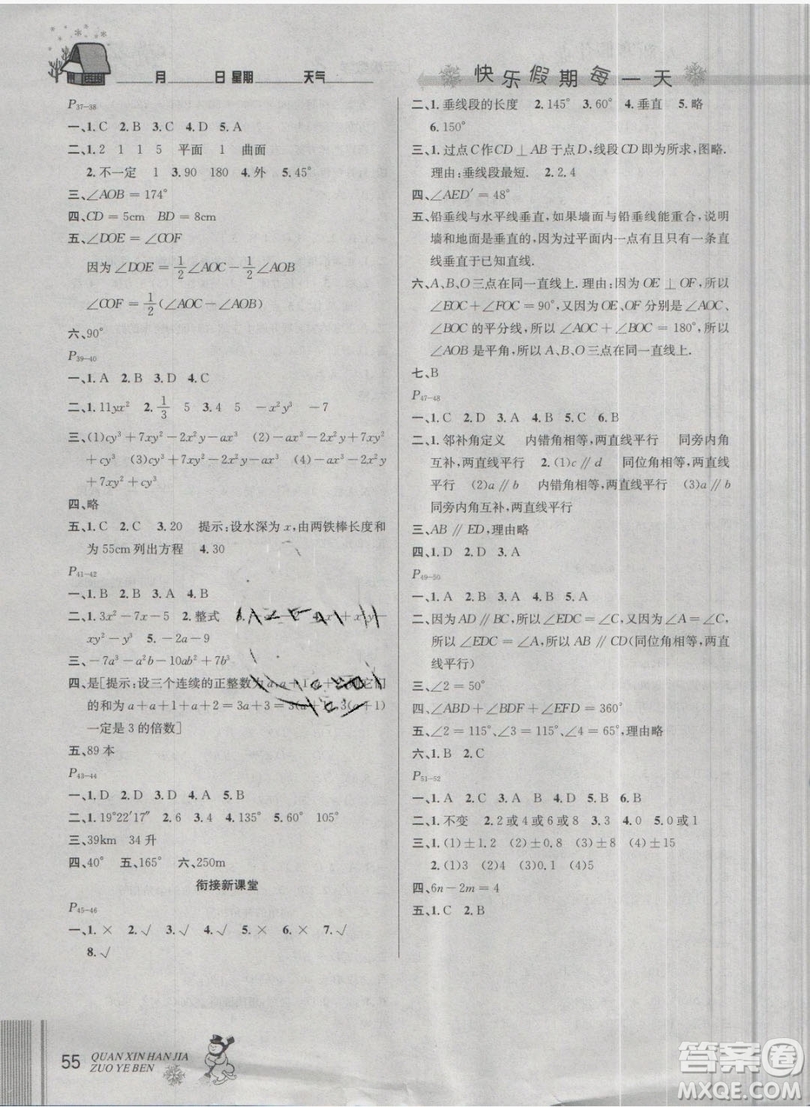 ____月____日 星期____天气____
P37-38
一、1. C 2. B 3. C 4. D 5. A
二、1. 2 1 1 5 平面 1 曲面
2. 不一定 1 3. 90 180 4. 外 5. 二
三、∠AOB=174°
四、CD=5cm BD=8cm
五、∠DOE=∠COF
因为∠DOE=1/2∠AOC-1/2∠AOB
∠COF=1/2(∠AOC-∠AOB)
六、90°
P39-40
一、1. A 2. B 3. D 4. D
二、1. 11yx² 2. 1/3 3. 5 4. 4 5 5. -x² -7
三、(1)cy³+7xy²-2x²y-ax³ (2)-ax³-2x²y+7xy²+cy³ (3)cy³-2x²y+7xy²-ax³ (4)-ax³+7xy²-2x²y+cy³
四、略
五、1. C 2. C 3. 20 提示:设水深为x,由两铁棒长度和
为55cm列出方程 4. 30
P41-42
一、1. A 2. C 3. A 4. B
二、1. 3x²-7x-5 2. 整式
xy²-y³ 5. -2a-9
三、-7a³-a²b-10ab²+7b³
四、是[提示:设三个连续的正整数为a,a+1,a+2,
的和为a+a+1+a+2=3a+3=3(a+1),3(a+1)
一定是3的倍数]
五、89本
P43-44
一、1. D 2. D 3. D 4. A 5. B
二、1. 19°22′17″ 2. 6 3. 4 4. 135° 5. 60°
三、39km 34升
四、40° 五、165° 六、250m
衔接新课堂
P45-46
一、1. × 2. √ 3. √ 4. √ 5. × 6. × 7. √
8. √
快乐假期每一天
二、1. 垂线段的长度 2. 145° 3. 60° 4. 垂直 5. 略
6. 150°
三、1. 过点C作CD⊥AB于点D,线段CD即为所求,图略.
理由:垂线段最短. 2. 2.4
四、∠AED′=48°
五、铅垂线与水平线垂直,如果墙面与铅垂线能重合,说明
墙和地面是垂直的,因为过平面内一点有且只有一条直
线垂直于已知直线.
六、A、B、O三点在同一直线上. 理由:因为OE⊥OF,所以
∠EOC+∠FOC=90°,又因为OE、OF分别是∠AOC、
∠BOC的平分线,所以∠AOC+∠BOC=180°,所以
∠AOB是平角,所以A、B、O三点在同一直线上.
七、B
P47-48
一、1. C 2. D 3. D 4. A
二、1. 邻补角定义 内错角相等,两直线平行 同旁内角
互补,两直线平行 2. (1)c∥d 同位角相等,两直线
平行 (2)a∥b 内错角相等,两直线平行 (3)a∥b
同旁内角互补,两直线平行
三、AB∥ED,理由略
四、1. D 2. D 3. A
P49-50
一、1. A 2. B 3. D 4. C
二、因为AD∥BC,所以∠EDC=∠C,又因为∠A=∠C,
所以∠EDC=∠A,所以AB∥CD(同位角相等,两直
线平行)
三、∠2=50°
四、∠ABD+∠BDF+∠EFD=360°
五、∠2=115°、∠3=115°、∠4=65°,理由略
六、1. B 2. C
P51-52
一、1. A 2. D 3. D 4. D 5. B 6. B
二、1. 不变 2. 2或4或6或8 3. 0或4 4. 0或1
三、1. (1)±1.2 (2)±0.8 (3)±2
2. (1)3 (2)4 (3)0.9 (4)±0.1
四、6n-2m=4
五、1. C 2. B
55 QUAN XIN HAN JIA
ZUO YE BEN
答案圈
MXQE.COM